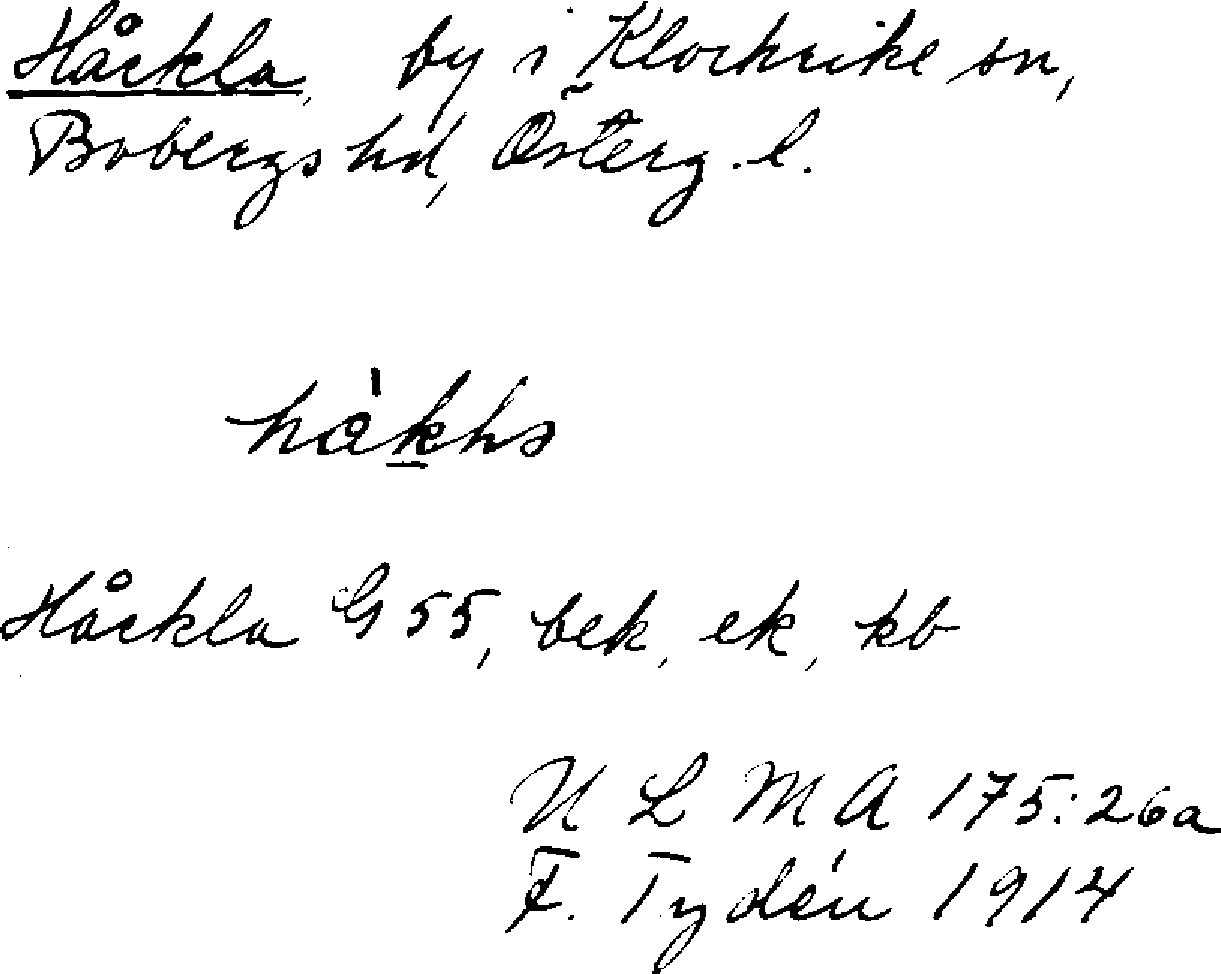 Håckla, by i Klockrike sn,
Bobergs hd, Österg. l.
Håckla G 55, bek, ek, kb
ULMA 175:26a
F. Tydén 1914